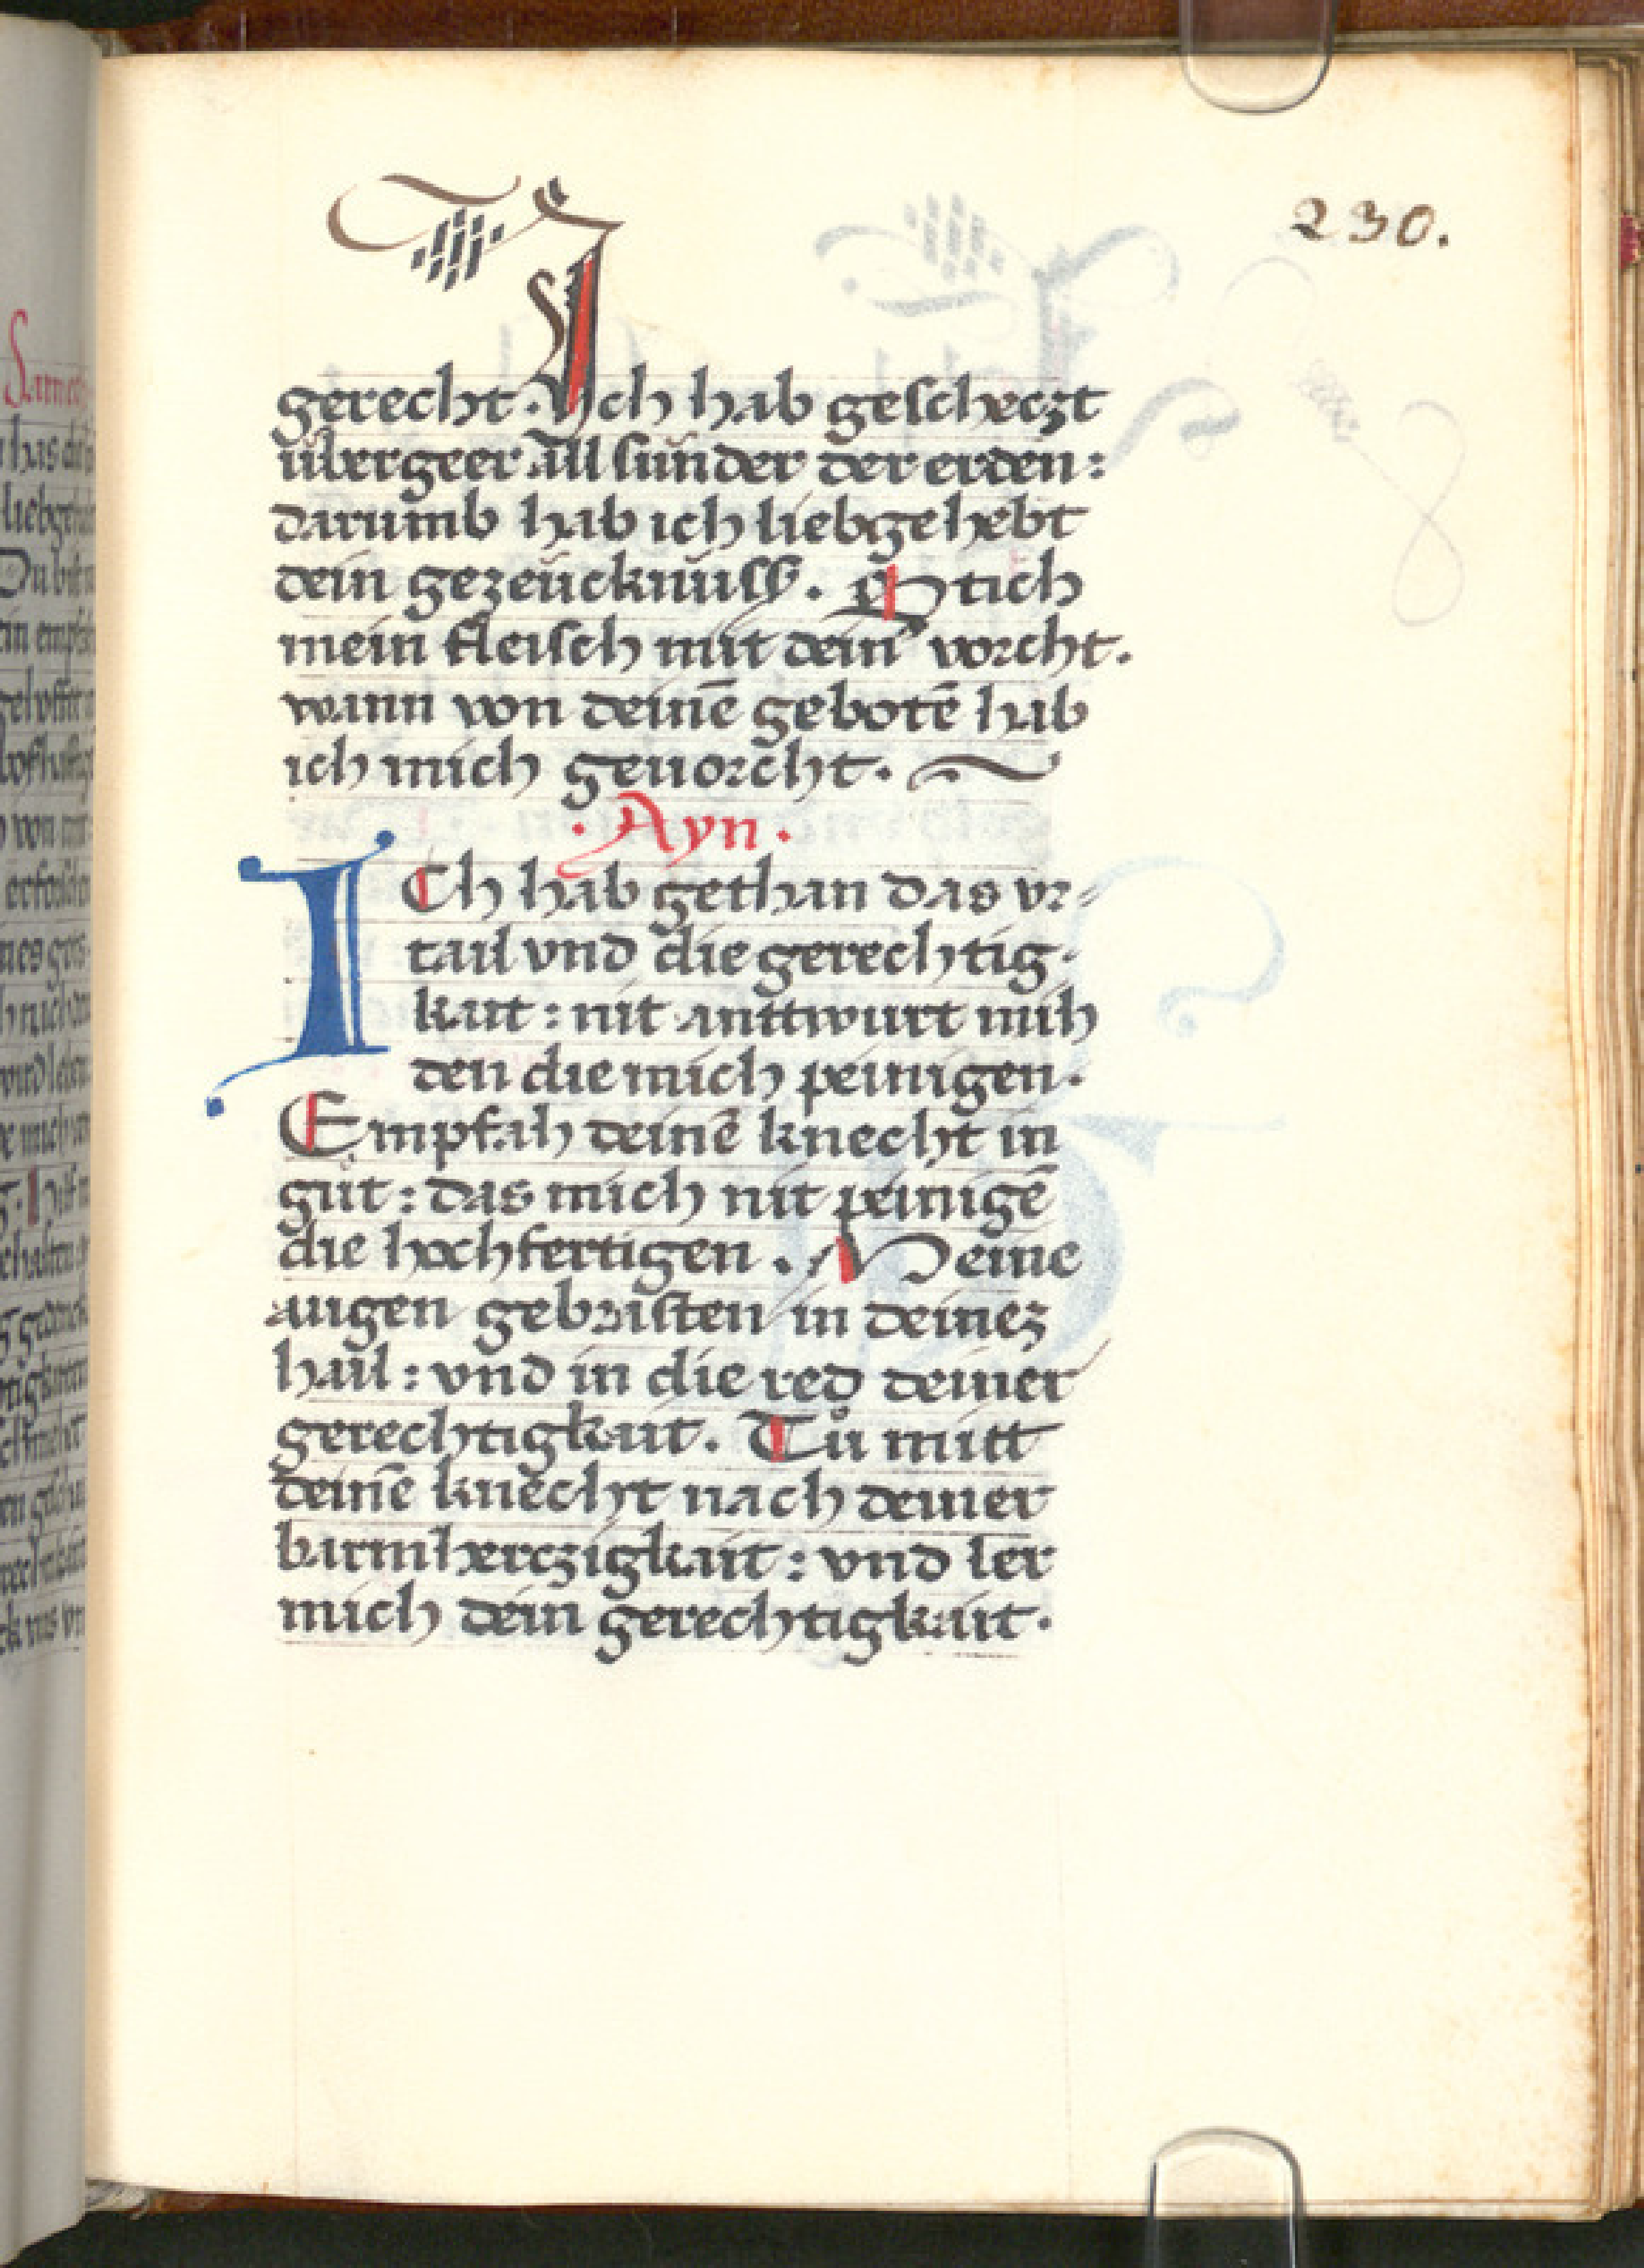 230.
gerecht. Ich hab gescheczt
übergeer all sünder der erden:
darumb hab ich liebgehebt
dein gezeücknüss. Stich
mein fleisch mit dein̄ vorcht.
wann von deinē gebotē hab
ich mich geuorcht.
. Ayn .
ICh hab gethan das vr-
tail vnd die gerechtig-
kait : nit anttwurt mih
den die mich peinigen.
Empfah deinē knecht in
güt : das mich nit peinigē
die hochfertigen. Meine
augen gebristen in deinez
hail : vnd in die red deiner
gerechtigkait. Tů mitt
deinē knecht nach deiner
barmherczigkait : vnd ler
mich dein gerechtigkait.